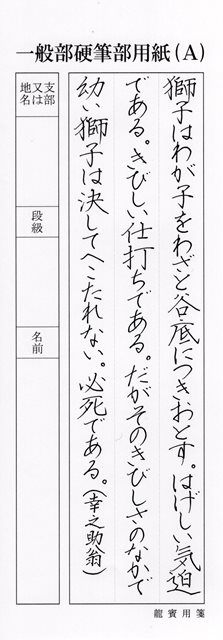 一般部硬筆部用紙(A)
獅子はわが子をわざと谷底につきおとす。はげしい気迫
である。きびしい仕打ちである。だがそのきびしさのなかで
幼い獅子は決してへこたれない。必死である。(幸之助翁)
支部
又は
地名
段級
名前
龍賓用箋